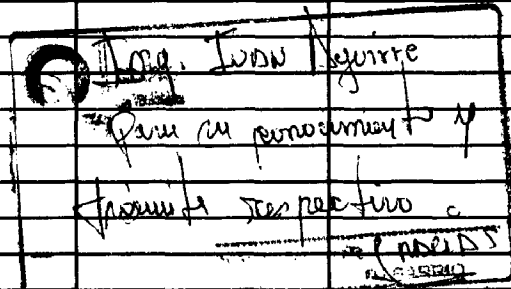 Ing. Ivan Aguirre
Para su conocimiento y
trámite respectivo.